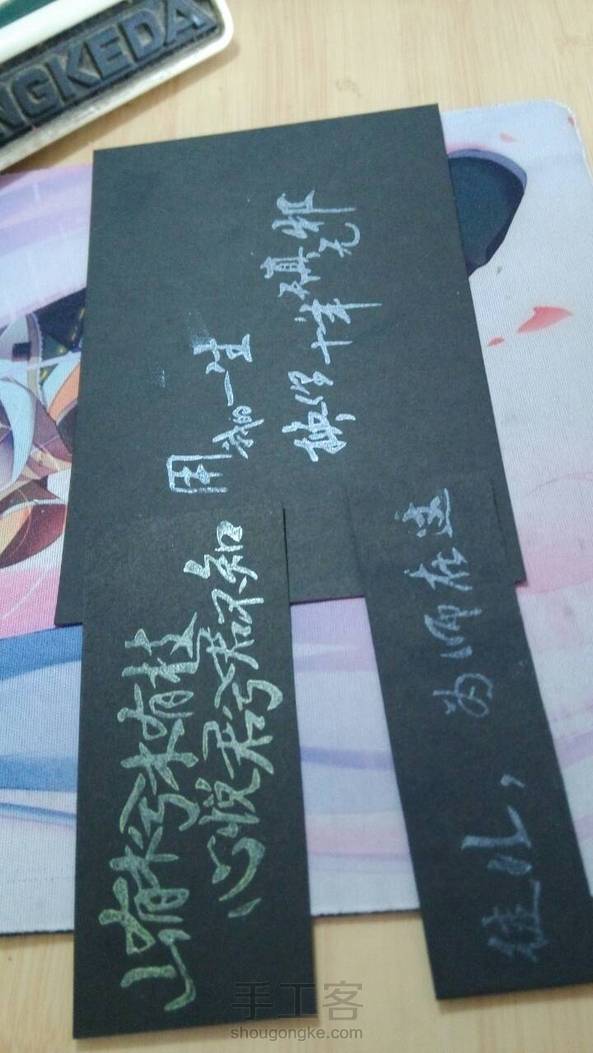 NGKEDA
用我一生
换你十年天真无邪
山有木兮木有枝
心悦君兮君不知
徒儿，为师在这
手工客
shougongke.com